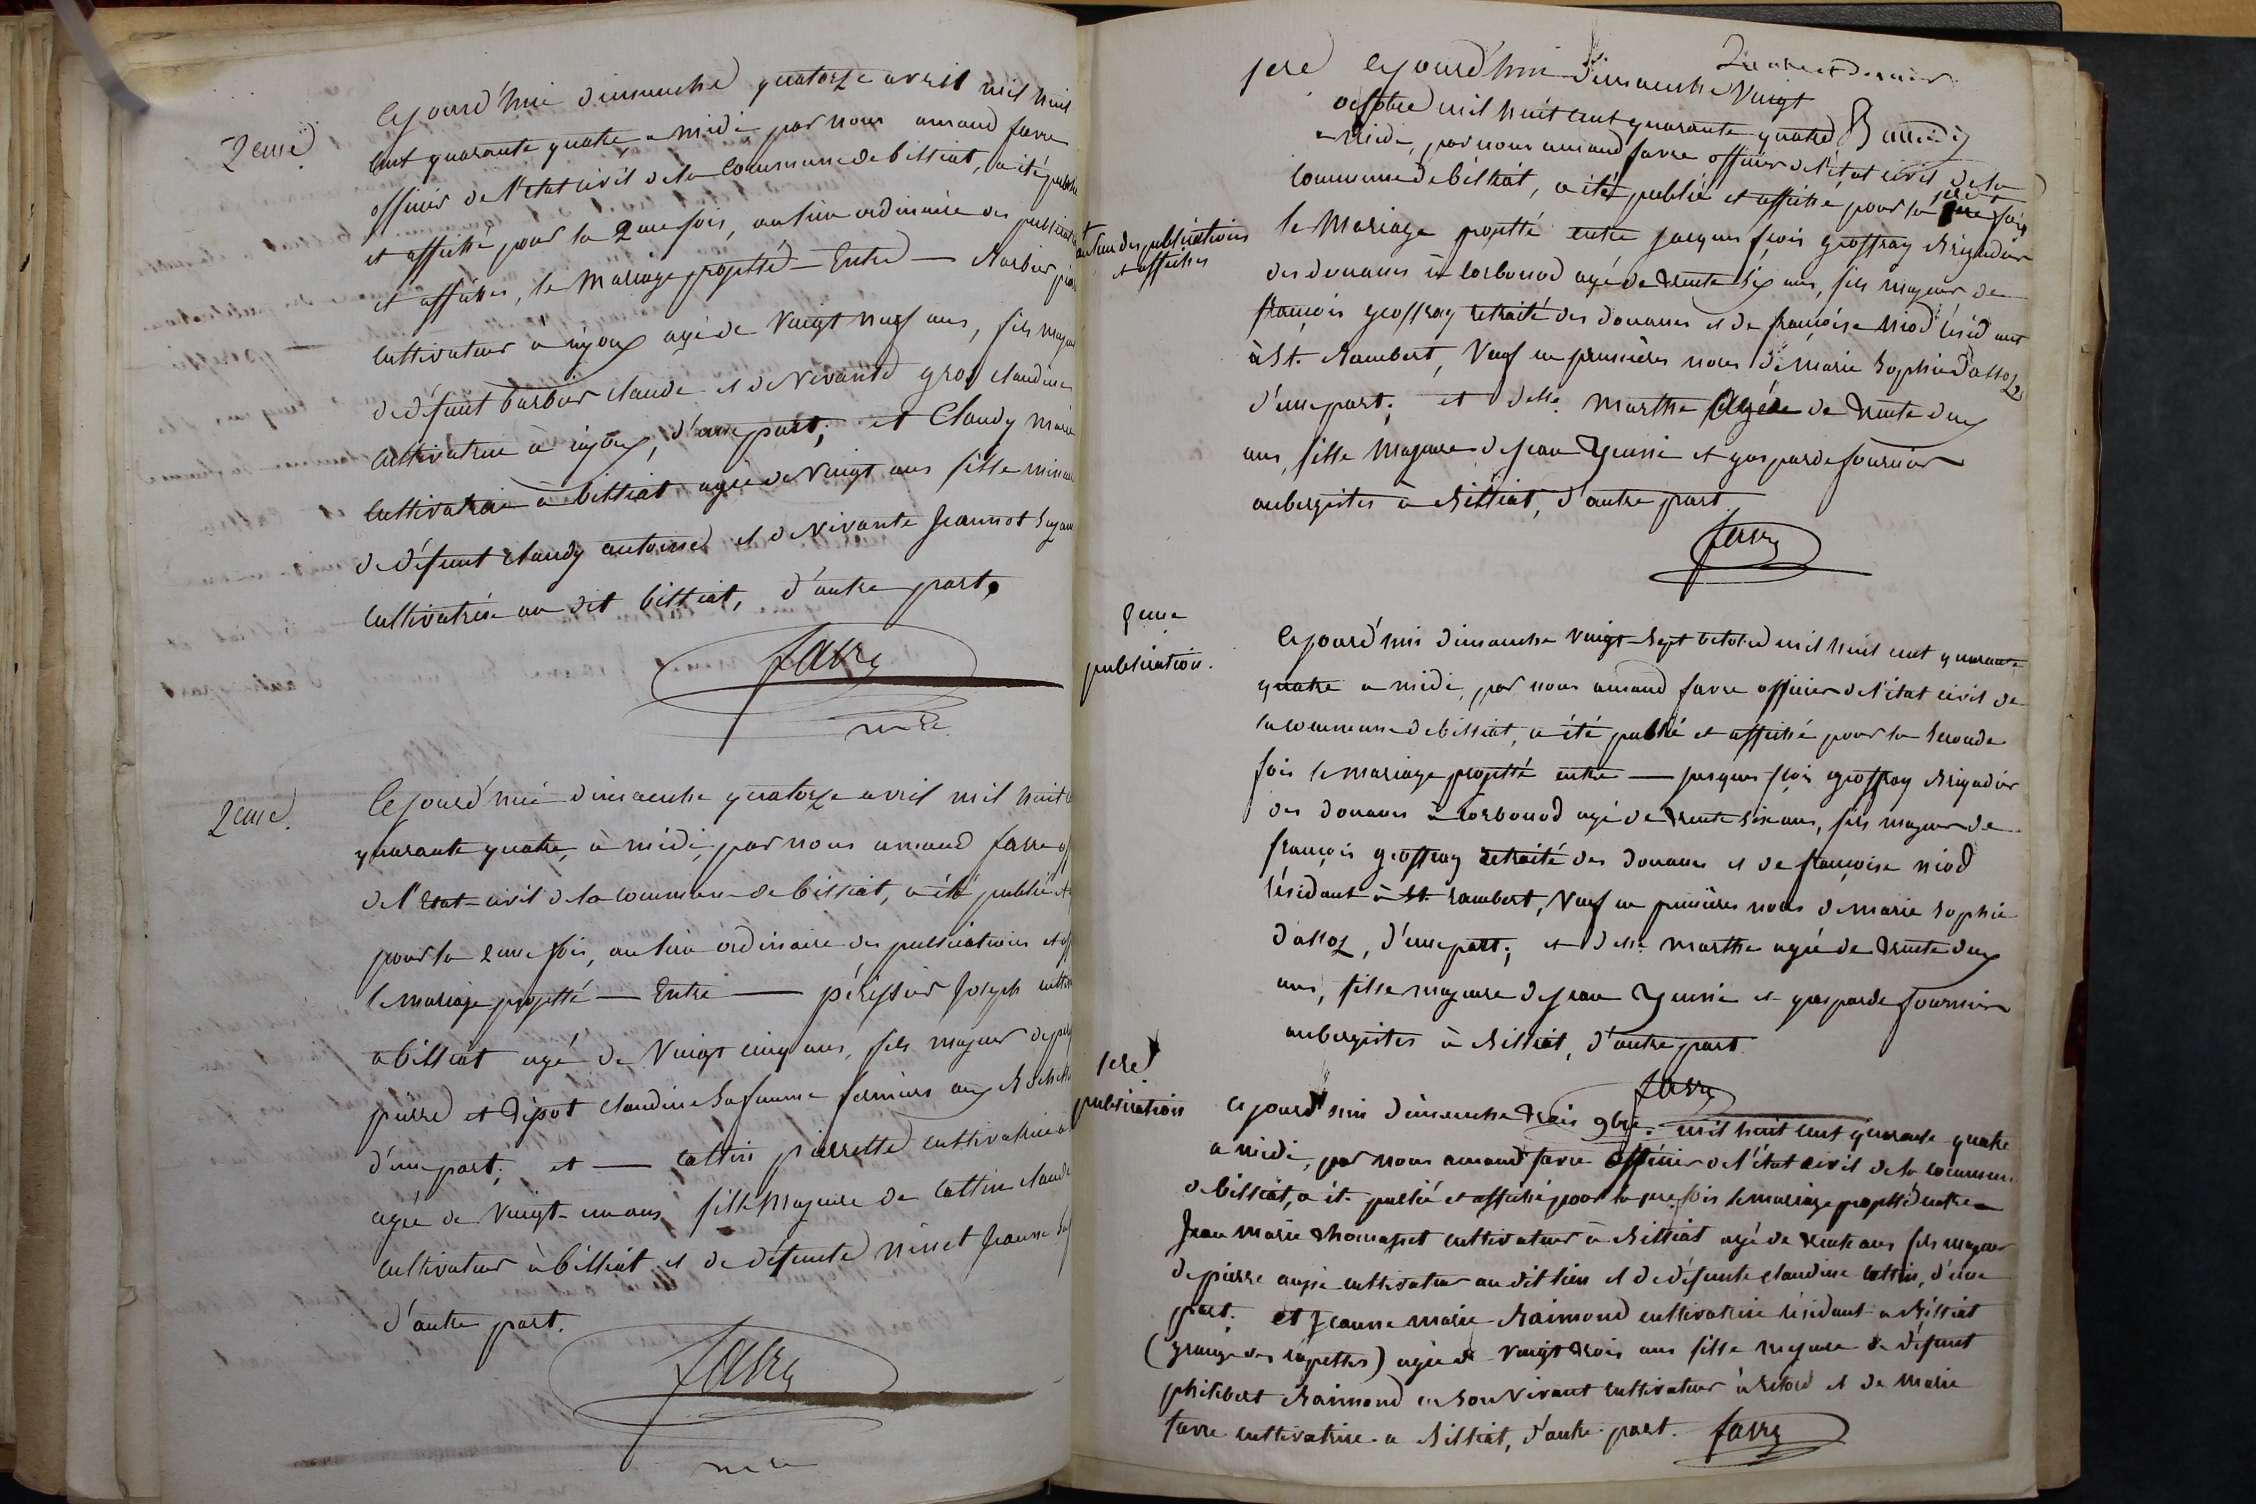 2eme
Cejourd'hui dimanche quatorze avril mil huit
cent quarante quatre, a midi par nous amand favre
officier de l'état civil de la commune de billiat, a été publié
et affiché pour la 2me fois, au lieu ordinaire des publications
et affiches, le Mariage projetté — Entre — Barbier
cultivateur à injoux agé de Vingt neuf ans, fils majeur
de défunt barbier claude et de vivante gros claudine
cultivatrice à injoux, d'une part; et Claudy marie
cultivatrice à billiat agée de Vingt ans fille mineure
de défunt claudy antoine et de vivante Jeannot
cultivatrice au dit billiat, d'autre part.
favre
mre
2eme
Cejourd'hui dimanche quatorze avril mil huit
quarante quatre, à midi, par nous amand favre
de l'état civil de la commune de billiat, a été publié et
pour la 2me fois, au lieu ordinaire des publications et
le mariage projetté — Entre — périssier Joseph
a billiat agé de Vingt cinq ans, fils majeur de
pierre et dépot claudine sa femme fermiers aux
d'une part; et — cottin pierrette cultivatrice à
agée de Vingt-un ans fille Majeure de Cottin claude
cultivateur à billiat et de défunte ninet Jeanne
d'autre part.
favre
1ere
Cejourd'hui dimanche Vingt
octobre mil huit cent quarante quatre
a midi, par nous amand favre officier de l'état civil de la
commune de billiat, a été publié et affiché pour la 1ere fois
au lieu des publications
et affiches
le Mariage projetté entre jacques fçois geoffray Brigadier
des douanes à corbonod agé de trente six ans, fils majeur de
françois geoffray retraité des douanes et de françoise niod résidant
à St. Rambert, Veuf en premières noces de marie Sophie dalloz,
d'une part; et delle. marthe agée de trente deux
ans, fille majeure de jean et gasparde fournier
aubergistes à Billiat, d'autre part
favre
2eme
publication.
Cejourd'hui dimanche vingt-sept octobre mil huit cent quarante
quatre a midi, par nous amand favre officier de l'état civil de
la commune de billiat, a été publié et affiché pour la seconde
fois le mariage projetté entre — jacques fçois geoffray Brigadier
des douanes à corbonod agé de trente six ans, fils majeur de
françois geoffray retraité des douanes et de françoise niod
résidant à St. rambert, Veuf en premières noces de marie sophie
dalloz, d'une part; et delle. marthe agée de trente deux
ans, fille majeure de jean et gasparde fournier
aubergistes à Billiat, d'autre part
favre
1ere
publication
Cejourd'hui dimanche trois 9bre. mil huit cent quarante quatre
a midi, par nous amand favre officier de l'état civil de la commune
de billiat, a été publié et affiché pour la 1re fois le mariage projetté entre
Jean marie thomasset cultivateur à Billiat agé de trente ans fils majeur
de pierre aussi cultivateur au dit lieu et de défunte claudine cottin, d'une
part. et Jeanne marie Raimond cultivatrice résidant a Billiat
(grange des rapettes) agée de vingt trois ans fille majeure de défunt
philibert Raimond en son vivant cultivateur à retord et de marie
favre cultivatrice a Billiat, d'autre part. favre